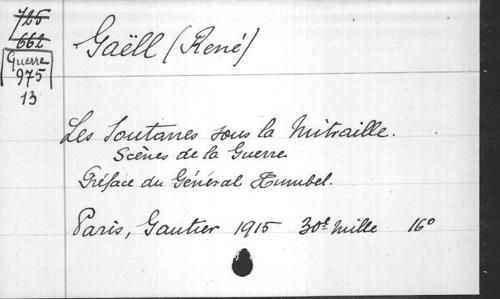 725
662
Guerre
975
13
Gaëll (René)
Les Soutanes sous la Mitraille.
Scènes de la Guerre.
Préface du Général Humbel.
Paris, Gautier 1915 30e mille 16°